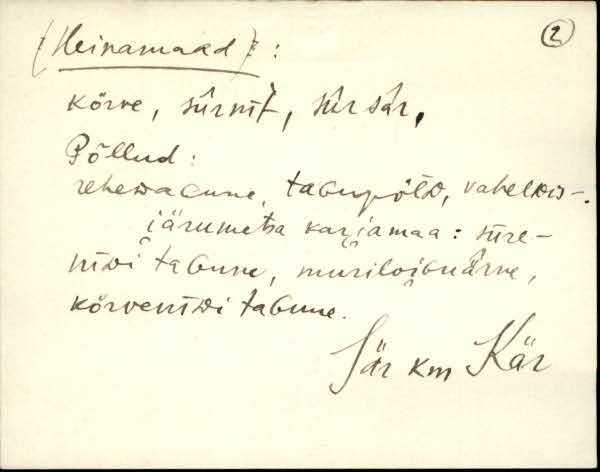 (Heinamaad): 2
kõrve, sūrnīt, sūr sār,
Põllud:
rehewabune, tabupõlᴅ, vahelᴅᴅ-
järumetsa karjamaa: sūre-
nīᴅi tabune, muriloibuārne,
kõrvenīᴅi tabune.
Jär km Kär